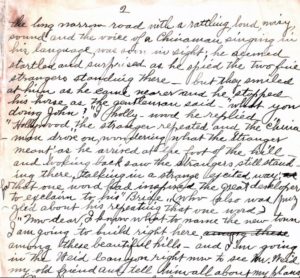 2
the long narrow road with a rattling loud noisy
sound and the voice of a Chinaman, singing in
his language, was soon in sight; he seemed
startled and surprised as he spied the two fine
strangers standing there — but they smiled
at him as he came nearer and he stopped
his horse, as the gentleman said — what you
doing John", I holly-wood he replied,
"Hollywood", he stranger repeated and the China-
man drove on, wondering what the stranger
meant, as he arrived at the foot of the hill
and looking back saw the strangers still stand-
ing there, talking in a strange excited way;
that one word had inspired the Great developer
to exclaim to his Bride (who also was
excited about it) repeating that one word
I "Now dear I know what to name the new town
I am going to build right here
among these beautiful hills — and I'm going
in the Weid Canyon right now to see Mr. Weid
my old friend and tell him all about my plans